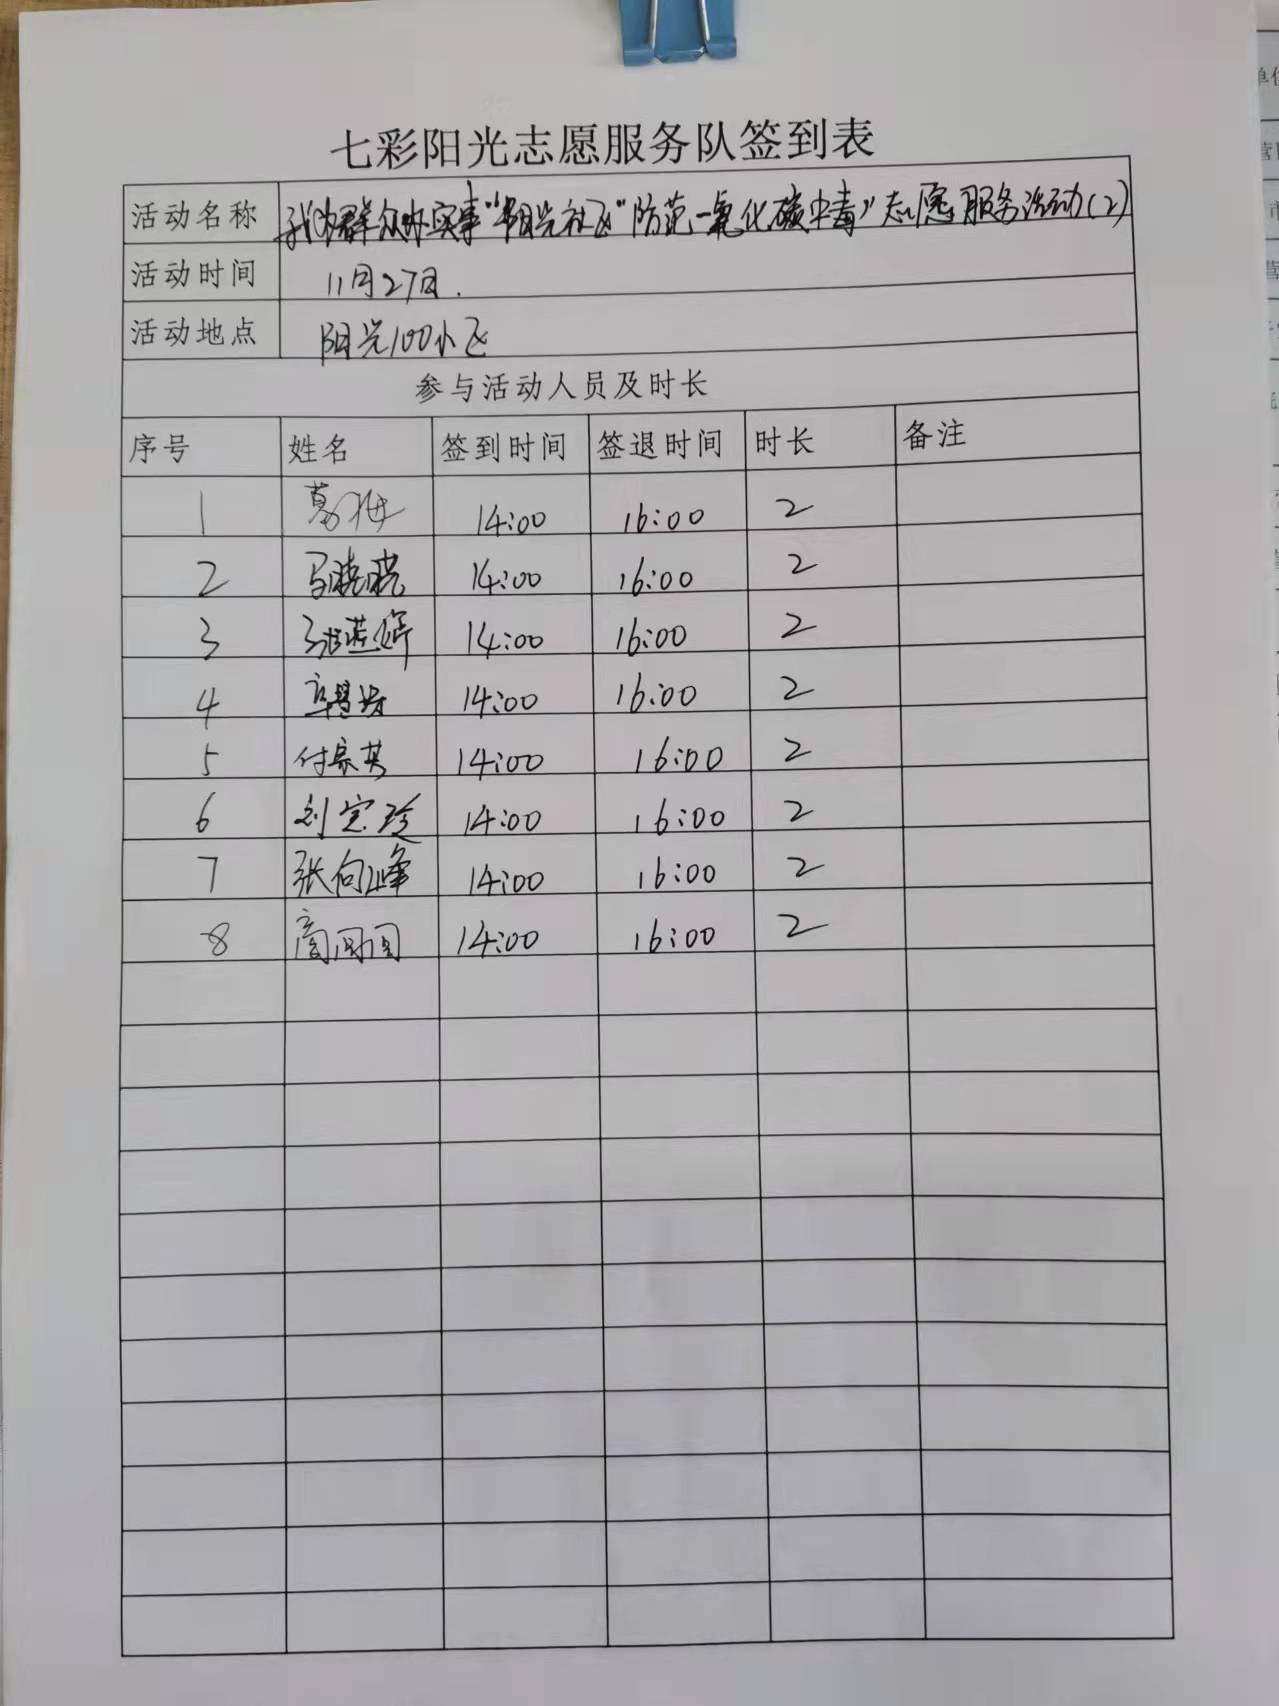 七彩阳光志愿服务队签到表
活动名称 我为群众办实事"阳光社区"防范一氧化碳中毒"志愿服务活动(2)
活动时间 11月27日.
活动地点 阳光100小区
参与活动人员及时长
序号 姓名 签到时间 签退时间 时长 备注
1 葛梅 14:00 16:00 2
2 马晓晓 14:00 16:00 2
3 14:00 16:00 2
4 14:00 16:00 2
5 付宗英 14:00 16:00 2
6 刘宝珍 14:00 16:00 2
7 张向峰 14:00 16:00 2
8 14:00 16:00 2